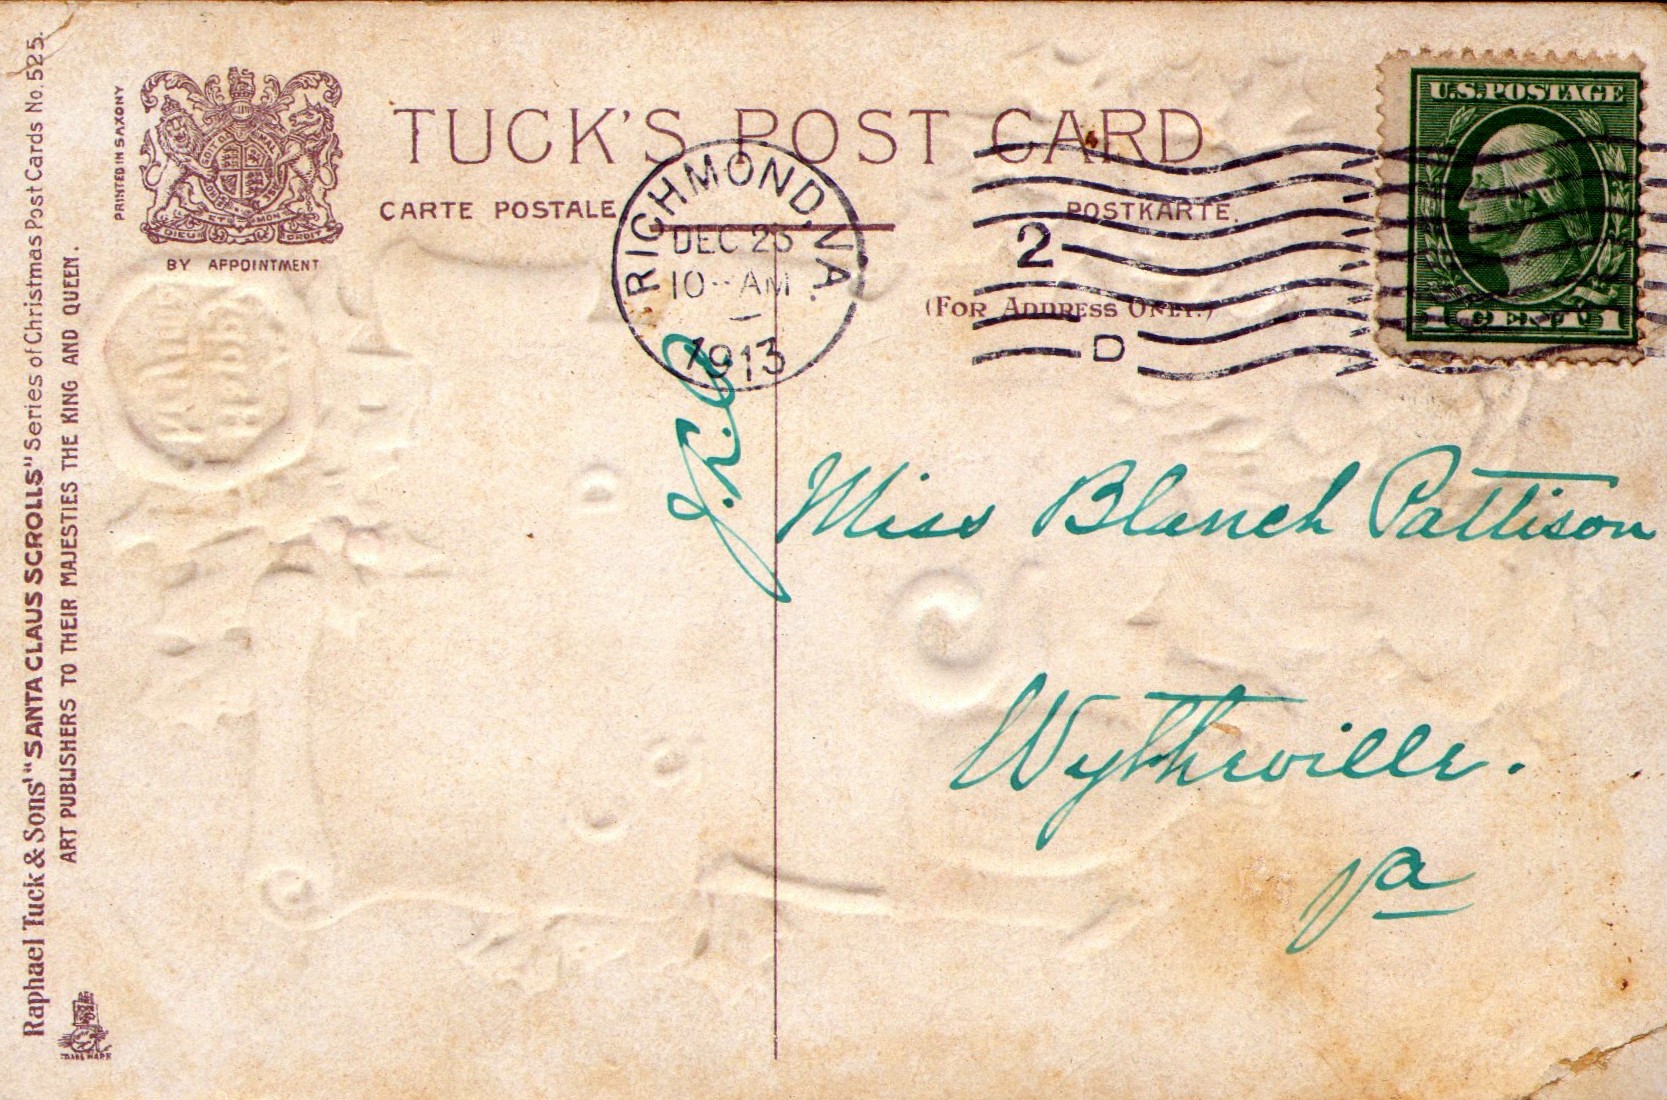 Raphael Tuck & Sons' "SANTA CLAUS SCROLLS" Series of Christmas Post Cards No. 525.
ART PUBLISHERS TO THEIR MAJESTIES THE KING AND QUEEN.
PRINTED IN SAXONY
BY APPOINTMENT
DIEU ET MON DROIT
TRADE MARK
TUCK'S POST CARD
CARTE POSTALE
POSTKARTE.
(FOR ADDRESS ONLY.)
RICHMOND, VA.
DEC 23
10-AM
1913
2
D
U.S. POSTAGE
1 CENT 1
Miss Blanch Pattison
Wytheville.
Va